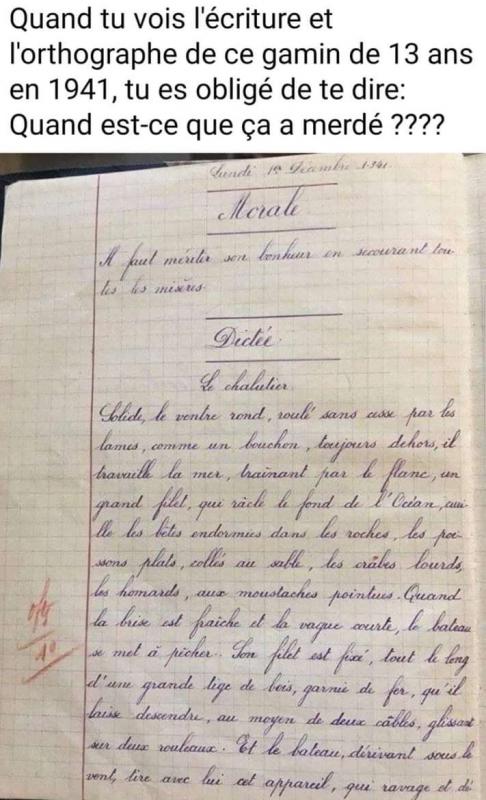 Quand tu vois l'écriture et
l'orthographe de ce gamin de 13 ans
en 1941, tu es obligé de te dire:
Quand est-ce que ça a merdé ????
Lundi 1er Décembre 1941.
Morale
Il faut mériter son bonheur en secourant tou-
tes les misères.
Dictée
Le chalutier.
Solide, le ventre rond, roulé sans cesse par les
lames, comme un bouchon, toujours dehors, il
travaille la mer, traînant par le flanc, un
grand filet, qui râcle le fond de l'Océan, cuei-
lle les bêtes endormies dans les roches, les poi-
ssons plats, collés au sable, les crâbes lourds,
les homards, aux moustaches pointues. Quand
la brise est fraîche et la vague courte, le bateau
se met à pêcher. Son filet est fixé, tout le long
d'une grande tige de bois, garnie de fer, qu'il
laisse descendre, au moyen de deux câbles, glissant
sur deux rouleaux. Et le bateau, dérivant sous le
vent, tire avec lui cet appareil, qui ravage et dé